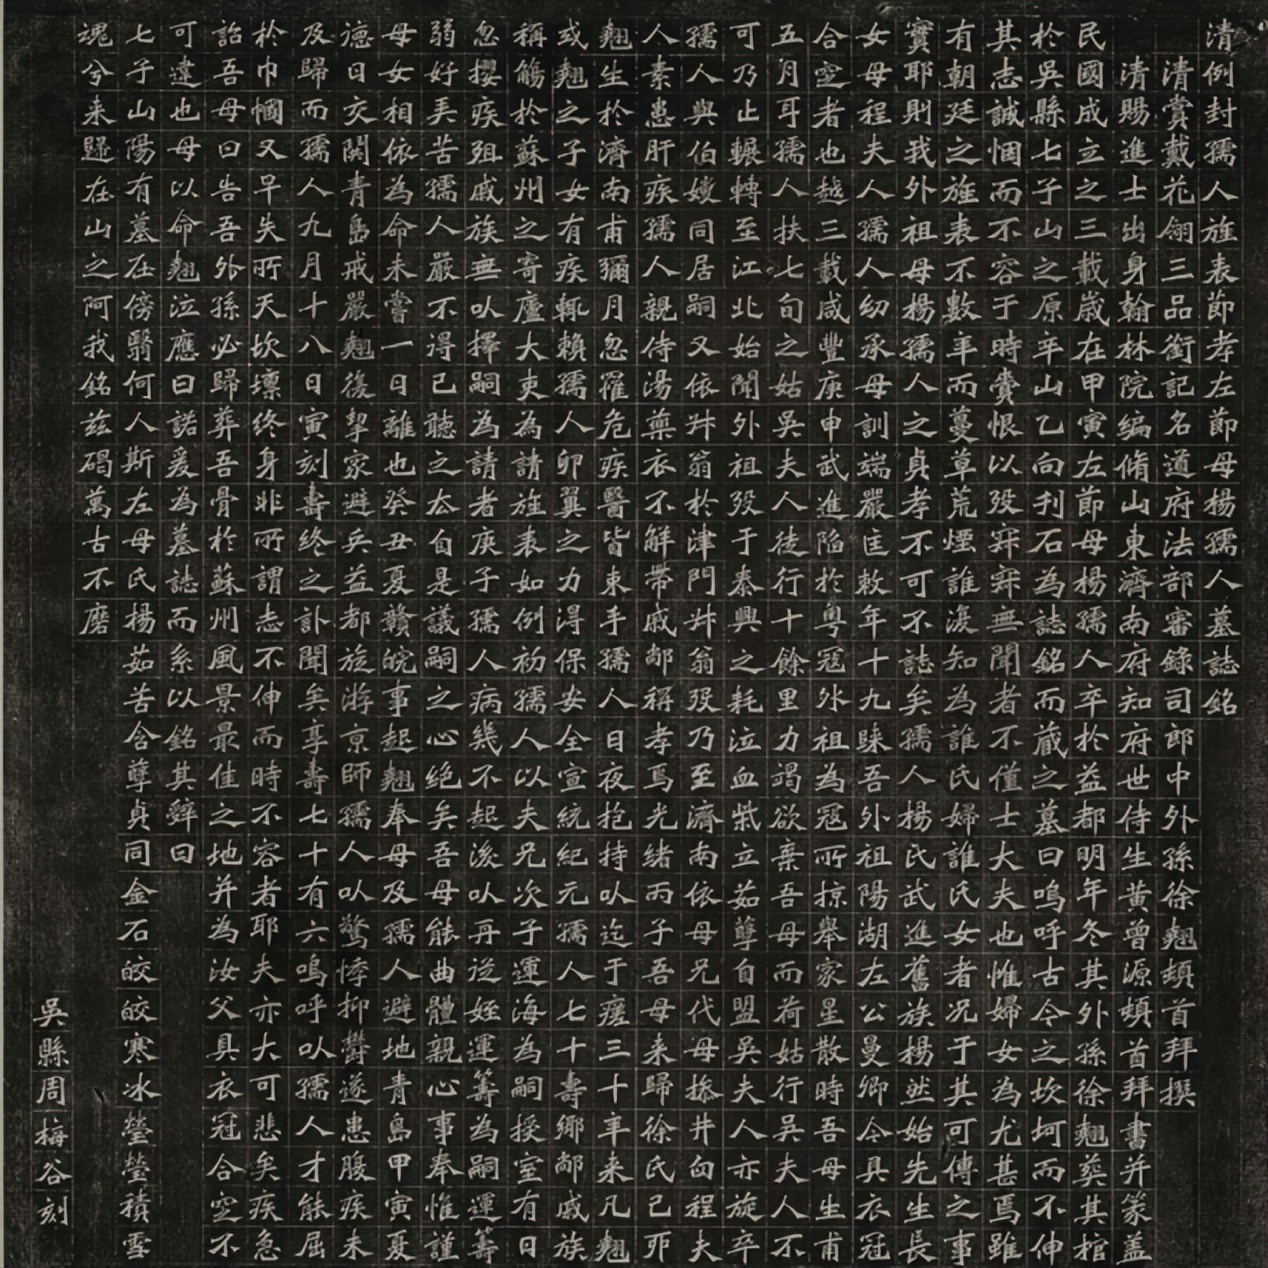 清例封孺人旌表節孝左節母楊孺人墓誌銘
清賞戴花翎三品銜記名道府法部審錄司郎中外孫徐翹頓首拜撰
清賜進士出身翰林院編脩山東濟南府知府世侍生黃曾源頓首拜書并篆蓋
民國成立之三載歲在甲寅左節母楊孺人卒於益都明年冬其外孫徐翹葬其棺
於吳縣七子山之原辛山乙向刊石為誌銘而藏之墓曰嗚呼古今之坎坷而不伸
其志誠悃而不容于時賫恨以歿寂寂無聞者不僅士大夫也惟婦女為尤甚焉雖
有朝廷之旌表不數年而蔓草荒煙誰復知為誰氏婦誰氏女者況于其可傳之事
實耶則我外祖母楊孺人之貞孝不可不誌矣孺人楊氏武進舊族楊然始先生長
女母程夫人孺人幼承母訓端嚴匡敕年十九歸吾外祖陽湖左公曼卿今具衣冠
合窆者也越三載咸豐庚申武進陷於粵寇外祖為寇所掠舉家星散時吾母生甫
五月耳孺人扶七旬之姑吳夫人徒行十餘里力竭欲棄吾母而荷姑行吳夫人不
可乃止輾轉至江北始聞外祖歿于泰興之耗泣血紫立茹孽自盟吳夫人亦旋卒
孺人與伯嫂同居嗣又依舛翁於津門舛翁歿乃至濟南依母兄代母摻井臼程夫
人素患肝疾孺人親侍湯藥衣不解帶戚鄰稱孝焉光緒丙子吾母來歸徐氏已夘
翹生於濟南甫彌月忽罹危疾醫皆束手孺人日夜抱持以迄于瘥三十年來凡翹
或翹之子女有疾輒賴孺人卵翼之力得保安全宣統紀元孺人七十壽鄉鄰戚族
稱觴於蘇州之寄廬大吏為請旌表如例初孺人以夫兄次子運海為嗣授室有日
忽攖疾殂戚族無以擇嗣為請者庚子孺人病幾不起後以再從姪運籌為嗣運籌
弱好弄苦孺人嚴不得已聽之去自是議嗣之心絕矣吾母能曲體親心事奉惟謹
母女相依為命未嘗一日離也癸丑夏贛皖事起翹奉母及孺人避地青島甲寅夏
德日交鬨青島戒嚴翹復挈家避兵益都旋游京師孺人以驚悸抑鬱遂患腹疾未
及歸而孺人九月十八日寅刻壽終之訃聞矣享壽七十有六嗚呼以孺人才能屈
於巾幗又早失所天坎壈終身非所謂志不伸而時不容者耶夫亦大可悲矣疾急
詒吾母曰告吾外孫必歸葬吾骨於蘇州風景最佳之地并為汝父具衣冠合窆不
可違也母以命翹泣應曰諾爰為墓誌而系以銘其辭曰
七子山陽有墓在傍翳何人斯左母氏楊茹苦含孽貞同金石皎皎寒冰瑩瑩積雪
魂兮来歸在山之阿我銘茲碣萬古不磨
吳縣周梅谷刻